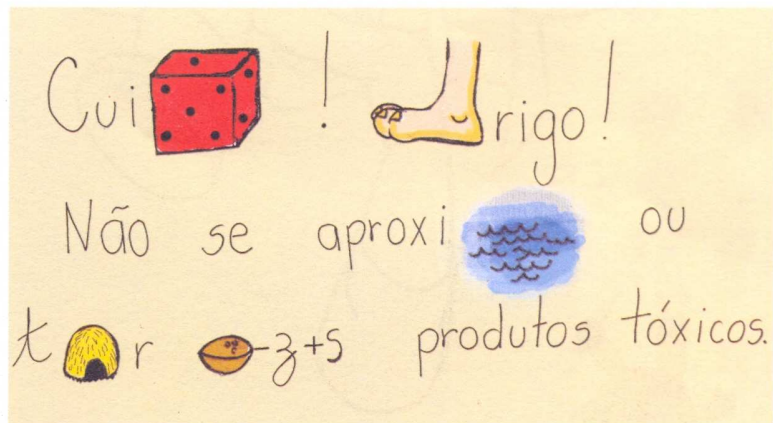 Cui ! rigo!
Não se aproxi ou
t r -z+s produtos tóxicos.